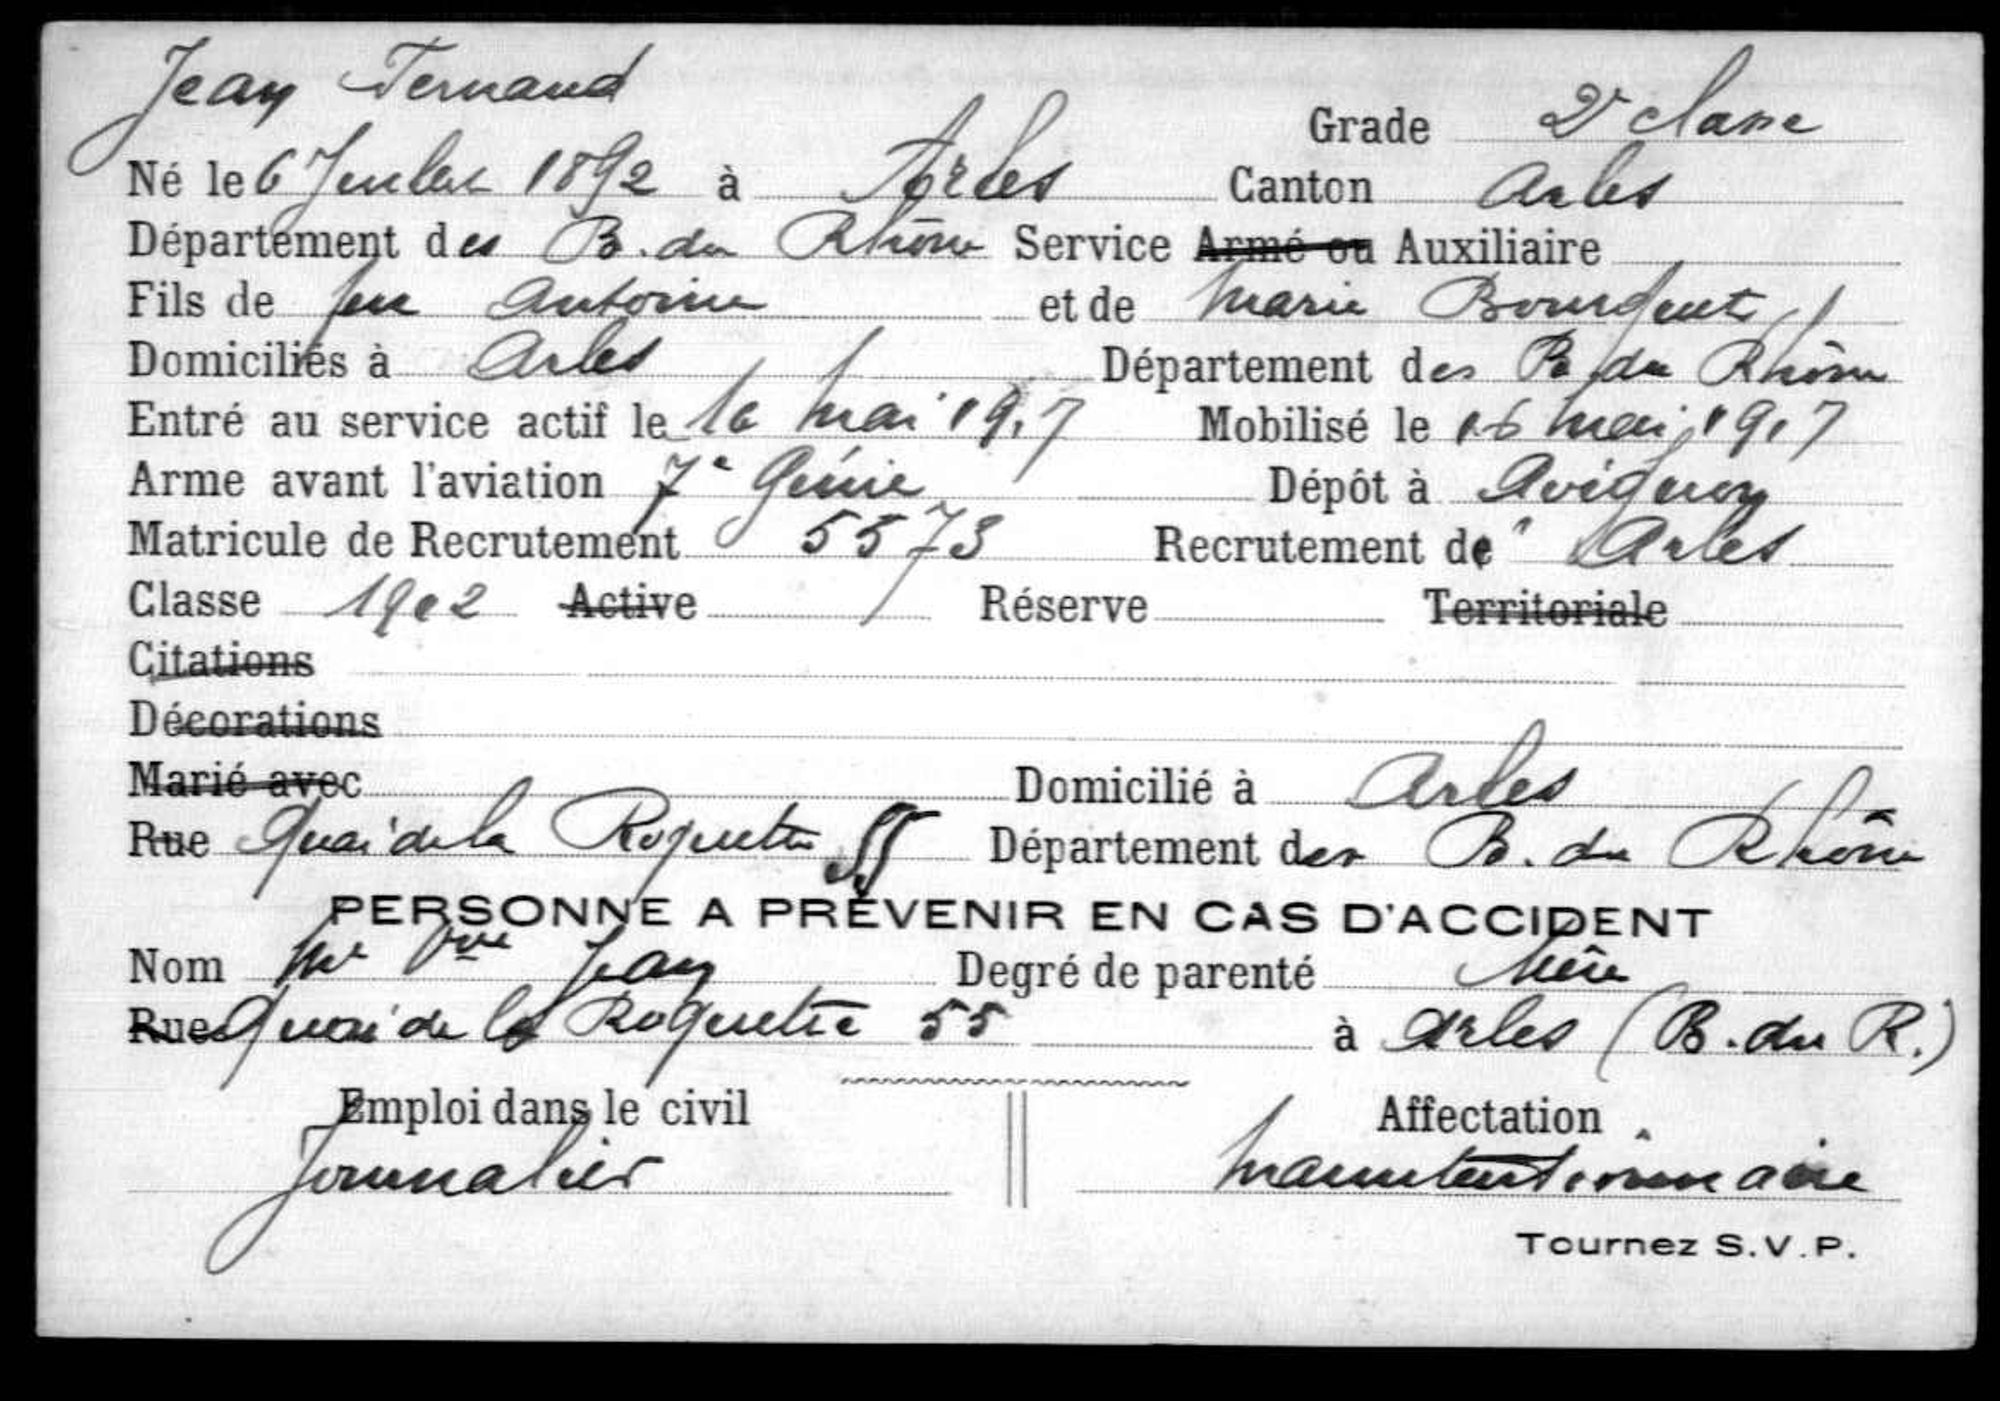 Jean Fernand
Grade 2e classe
Né le 6 Juillet 1892 à Arles Canton Arles
Département des B. du Rhône Service Armé ou Auxiliaire
Fils de feu Antoine et de Marie Bourguet
Domiciliés à Arles Département des B. du Rhône
Entré au service actif le 16 Mai 1917 Mobilisé le 16 Mai 1917
Arme avant l'aviation 7e Génie Dépôt à Avignon
Matricule de Recrutement 5573 Recrutement de Arles
Classe 1912 Active Réserve Territoriale
Citations
Décorations
Marié avec Domicilié à Arles
Rue Quai de la Roquette 55 Département des B. du Rhône
PERSONNE A PRÉVENIR EN CAS D'ACCIDENT
Nom Me Vve Jean Degré de parenté Mère
Rue Quai de la Roquette 55 à Arles (B. du R.)
Emploi dans le civil Affectation
Journalier manutentionnaire
Tournez S.V.P.